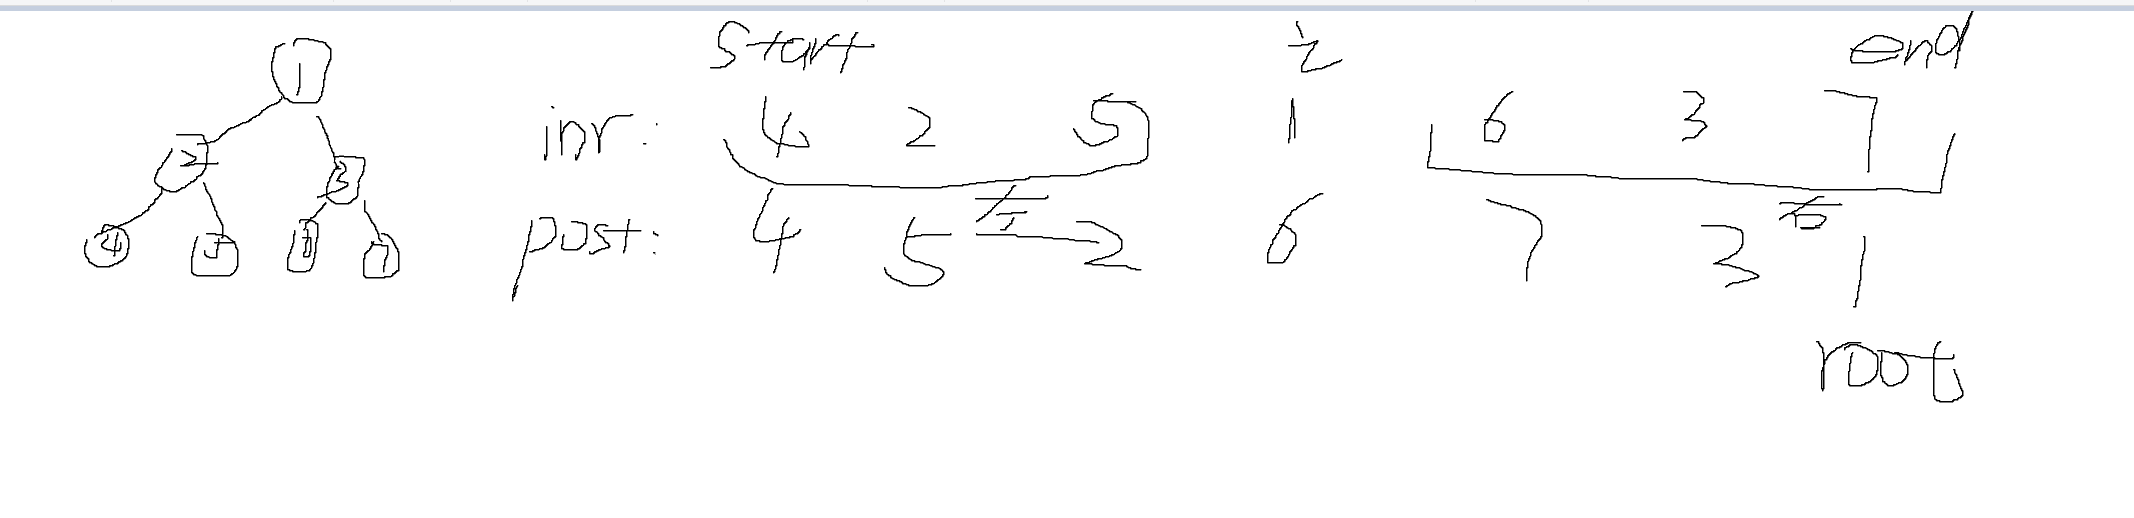 1
2 3
4 7
start i end
inr: 4 2 5 1 6 3 7
左 右
post: 4 5 2 6 7 3 1
root